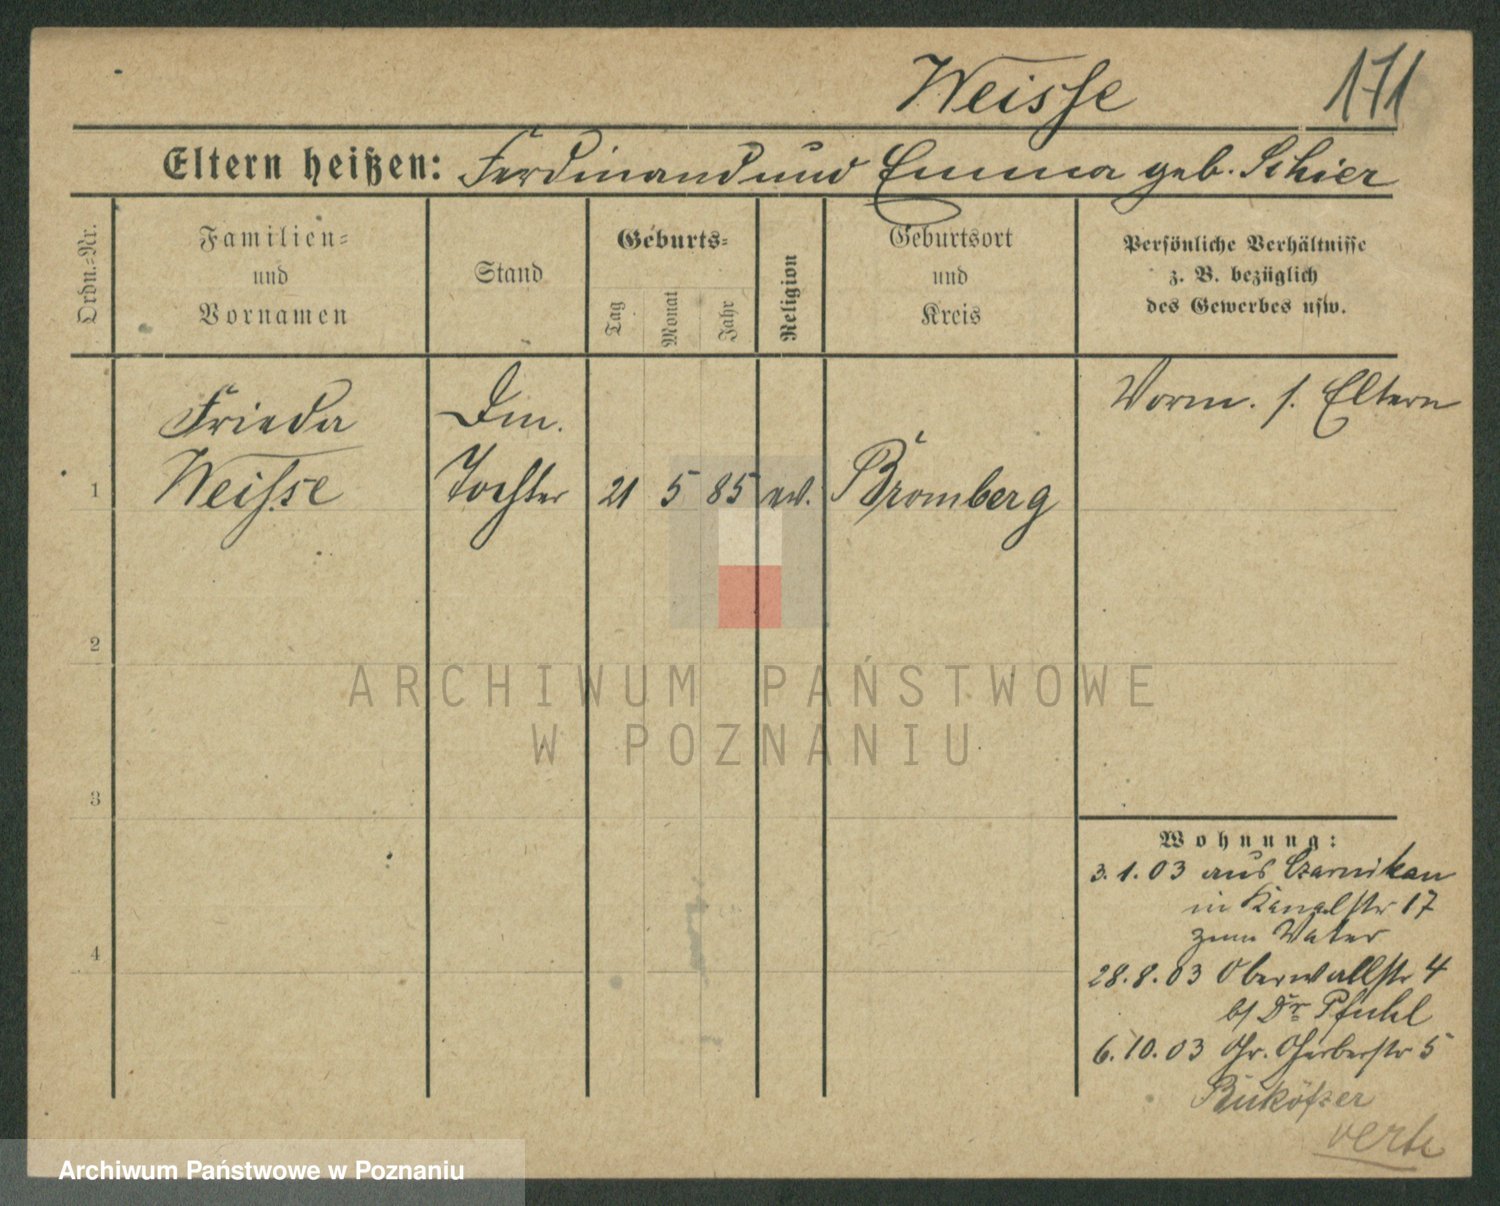 Weisse 171
Eltern heißen: Ferdinand und Emma geb. Schier
Ordn.-Nr.
Familien-
und
Vornamen
Stand
Geburts-
Tag
Monat
Jahr
Religion
Geburtsort
und
Kreis
Persönliche Verhältnisse
z. B. bezüglich
des Gewerbes usw.
Frieda
Weisse
Tochter
1
21 5 85 ev. Bromberg
Vorm. s. Eltern
2
3
4
ARCHIWUM PAŃSTWOWE
W POZNANIU
Wohnung:
3.1.03 aus Czarnikau
in Kanalstr 17
zum Vater
28.8.03 Oberwallstr 4
b/ Dr Pfuhl
6.10.03 Gr. Gerberstr 5
verte
Archiwum Państwowe w Poznaniu